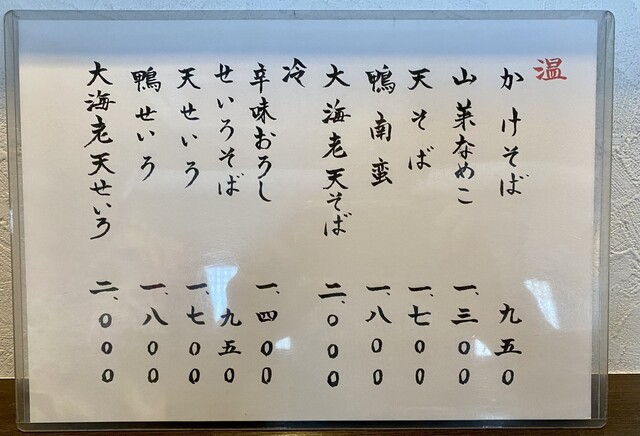 温
かけそば 九五0
山菜なめこ 一、三00
天そば 一、七00
鴨南蛮 一、八00
大海老天そば 二、000
冷
辛味おろし 一、四00
せいろそば 九五0
天せいろ 一、七00
鴨せいろ 一、八00
大海老天せいろ 二、000